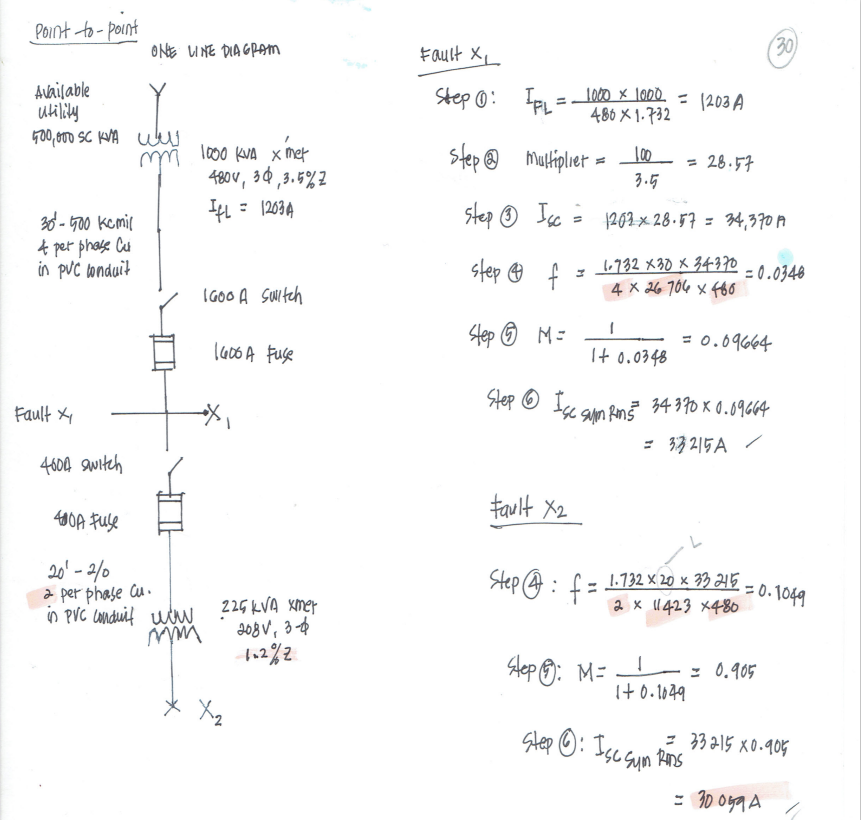 Point-to-point
ONE LINE DIAGRAM
Available
utility
500,000 SC KVA
1000 KVA xmer
480V, 3Φ, 3.5%Z
IfL = 1203A
30' - 500 Kcmil
4 per phase Cu
in PVC conduit
1600A Switch
1600A Fuse
Fault X1
X1
400A Switch
400A Fuse
20' - 2/0
2 per phase Cu.
in PVC conduit
225 KVA xmer
208V, 3-Φ
1.2%Z
X2
30
Fault X1
Step ①: IFL = 1000 x 1000 / 480 x 1.732 = 1203A
Step ② Multiplier = 100 / 3.5 = 28.57
Step ③ Isc = 1203 x 28.57 = 34,370A
Step ④ f = 1.732 x 30 x 34370 / 4 x 26706 x 480 = 0.0348
Step ⑤ M = 1 / 1 + 0.0348 = 0.09664
Step ⑥ Isc sym Rms = 34370 x 0.09664
= 33215A
Fault X2
L
Step ④: f = 1.732 x 20 x 33215 / 2 x 11423 x 480 = 0.1049
Step ⑤: M = 1 / 1 + 0.1049 = 0.905
Step ⑥: Isc sym Rms = 33215 x 0.905
= 30059A